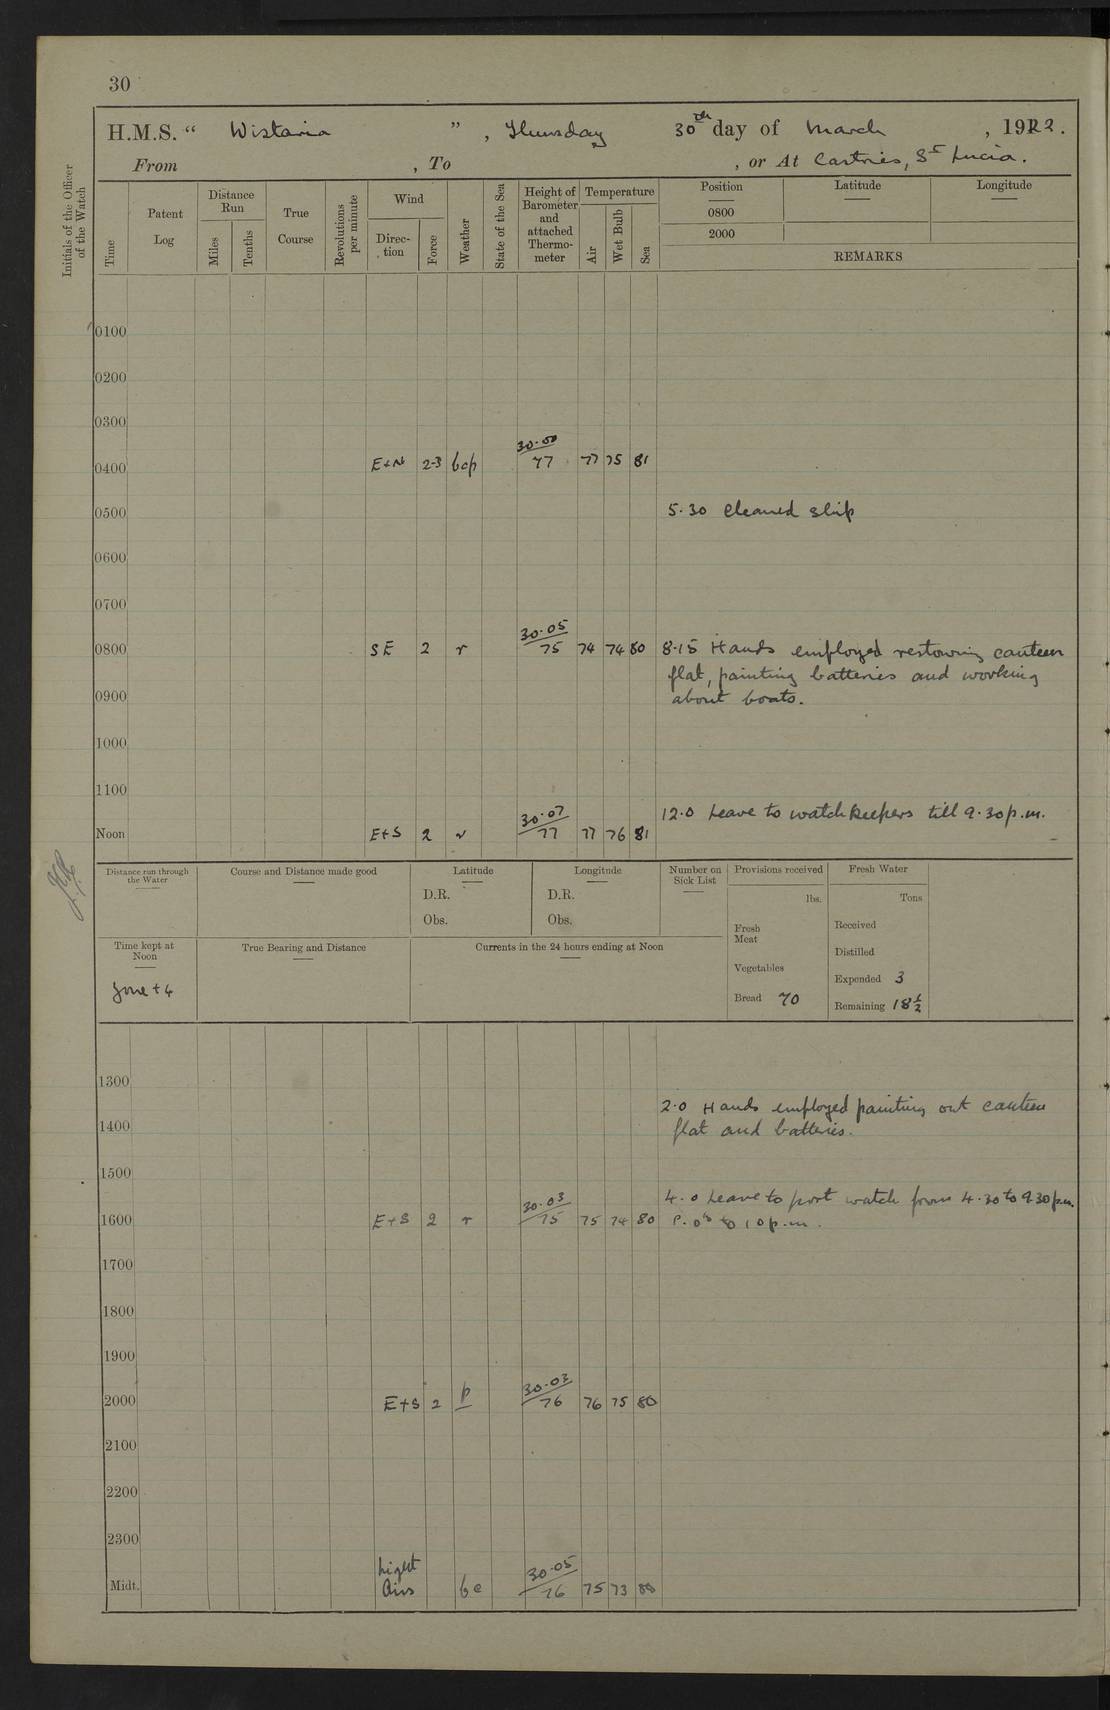 30
H.M.S. “ Wistaria ” , Thursday 30th day of March , 1922.
From , To , or At Castries, St Lucia.
Initials of the Officer of the Watch
Time
Patent Log
Distance Run
Miles
Tenths
True Course
Revolutions per minute
Wind
Direction
Force
Weather
State of the Sea
Height of Barometer and attached Thermometer
Temperature
Air
Wet Bulb
Sea
Position Latitude Longitude
0800
2000
REMARKS
0100
0200
0300
30.00
0400 E+N 2-3 bcp 77 77 75 81
0500 5.30 Cleaned ship
0600
0700
30.05
0800 SE 2 r 75 74 74 80 8.15 Hands employed restowing canteen
flat, painting batteries and working
0900 about boats.
1000
1100
30.07 12.0 Leave to watchkeepers till 9.30 p.m.
Noon E+S 2 r 77 77 76 81
Distance run through the Water
Course and Distance made good
Latitude
D.R.
Obs.
Longitude
D.R.
Obs.
Number on Sick List
Provisions received
lbs.
Fresh Meat
Vegetables
Bread 70
Fresh Water
Tons
Received
Distilled
Expended 3
Remaining 18½
Time kept at Noon
Zone + 4
True Bearing and Distance
Currents in the 24 hours ending at Noon
1300
2.0 Hands employed painting out canteen
1400 flat and batteries.
1500
30.03 4.0 Leave to port watch from 4.30 to 9.30 p.m.
1600 E+S 2 r 75 75 74 80 P.Os to 10 p.m.
1700
1800
1900
30.03
2000 E+S 2 p 76 76 75 80
2100
2200
2300
Light 30.05
Midt. Airs bc 76 75 73 80